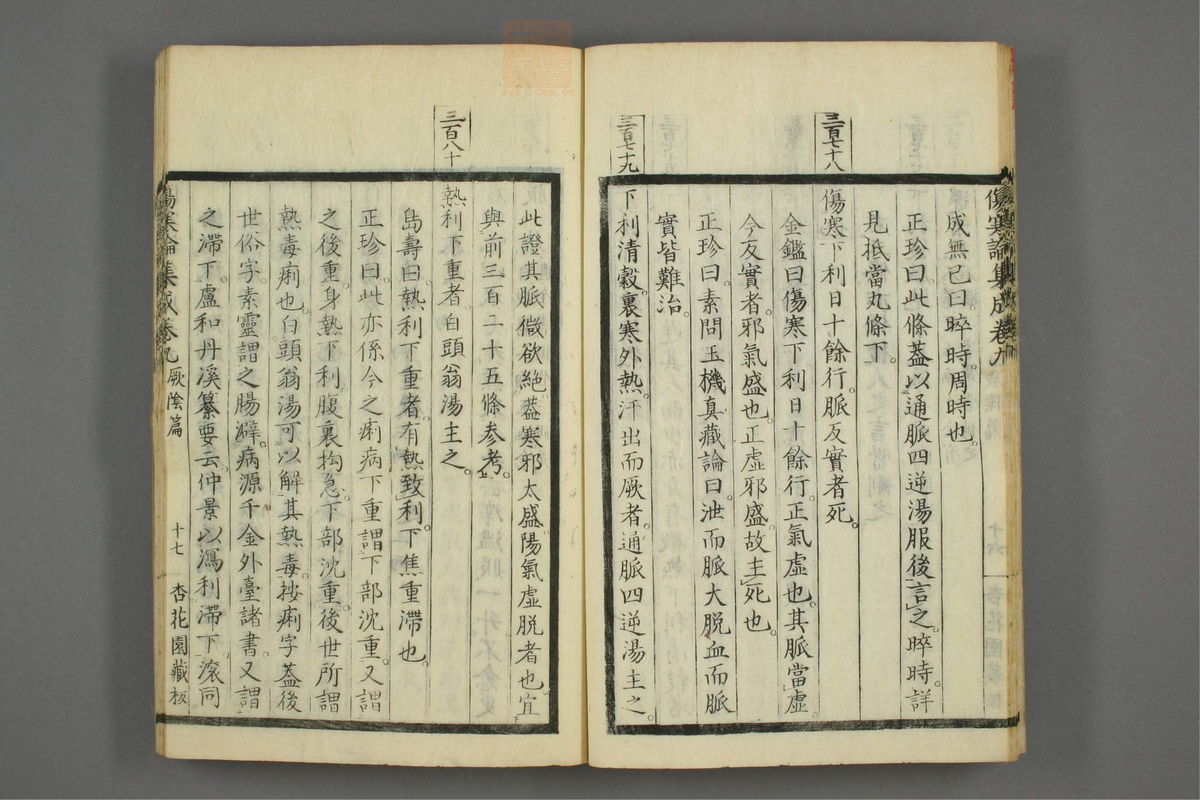 傷寒論集成卷九
成無己曰。晬時。周時也。
正珍曰。此條蓋以通脈四逆湯服後言之。晬時。詳
見抵當丸條下。
三百七十八
傷寒下利日十餘行。脈反實者死。
金鑑曰。傷寒下利日十餘行。正氣虛也。其脈當虛。
今反實者。邪氣盛也。正虛邪盛。故主死也。
正珍曰。素問玉機真藏論曰。泄而脈大。脫血而脈
實。皆難治。
三百七十九
下利清穀。裏寒外熱。汗出而厥者。通脈四逆湯主之。
此證其脈微欲絕。蓋寒邪太盛。陽氣虛脫者也。宜
與前三百二十五條參考。
三百八十
熱利下重者。白頭翁湯主之。
島壽曰。熱利下重者。有熱致利。下焦重滯也。
正珍曰。此亦係今之痢病。下重謂下部沈重。又謂
之後重。身熱下利。腹裏拘急。下部沈重。後世所謂
熱毒痢也。白頭翁湯可以解其熱毒。按痢字蓋後
世俗字。素靈謂之腸澼。病源千金外臺諸書。又謂
之滯下。盧和丹溪纂要云。仲景以瀉利滯下。滾同
傷寒論集成卷九
厥陰篇
十七
杏花園藏板